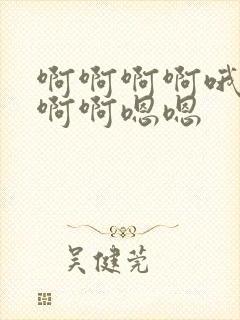 啊啊啊啊哦
啊啊嗯嗯
吴健莞